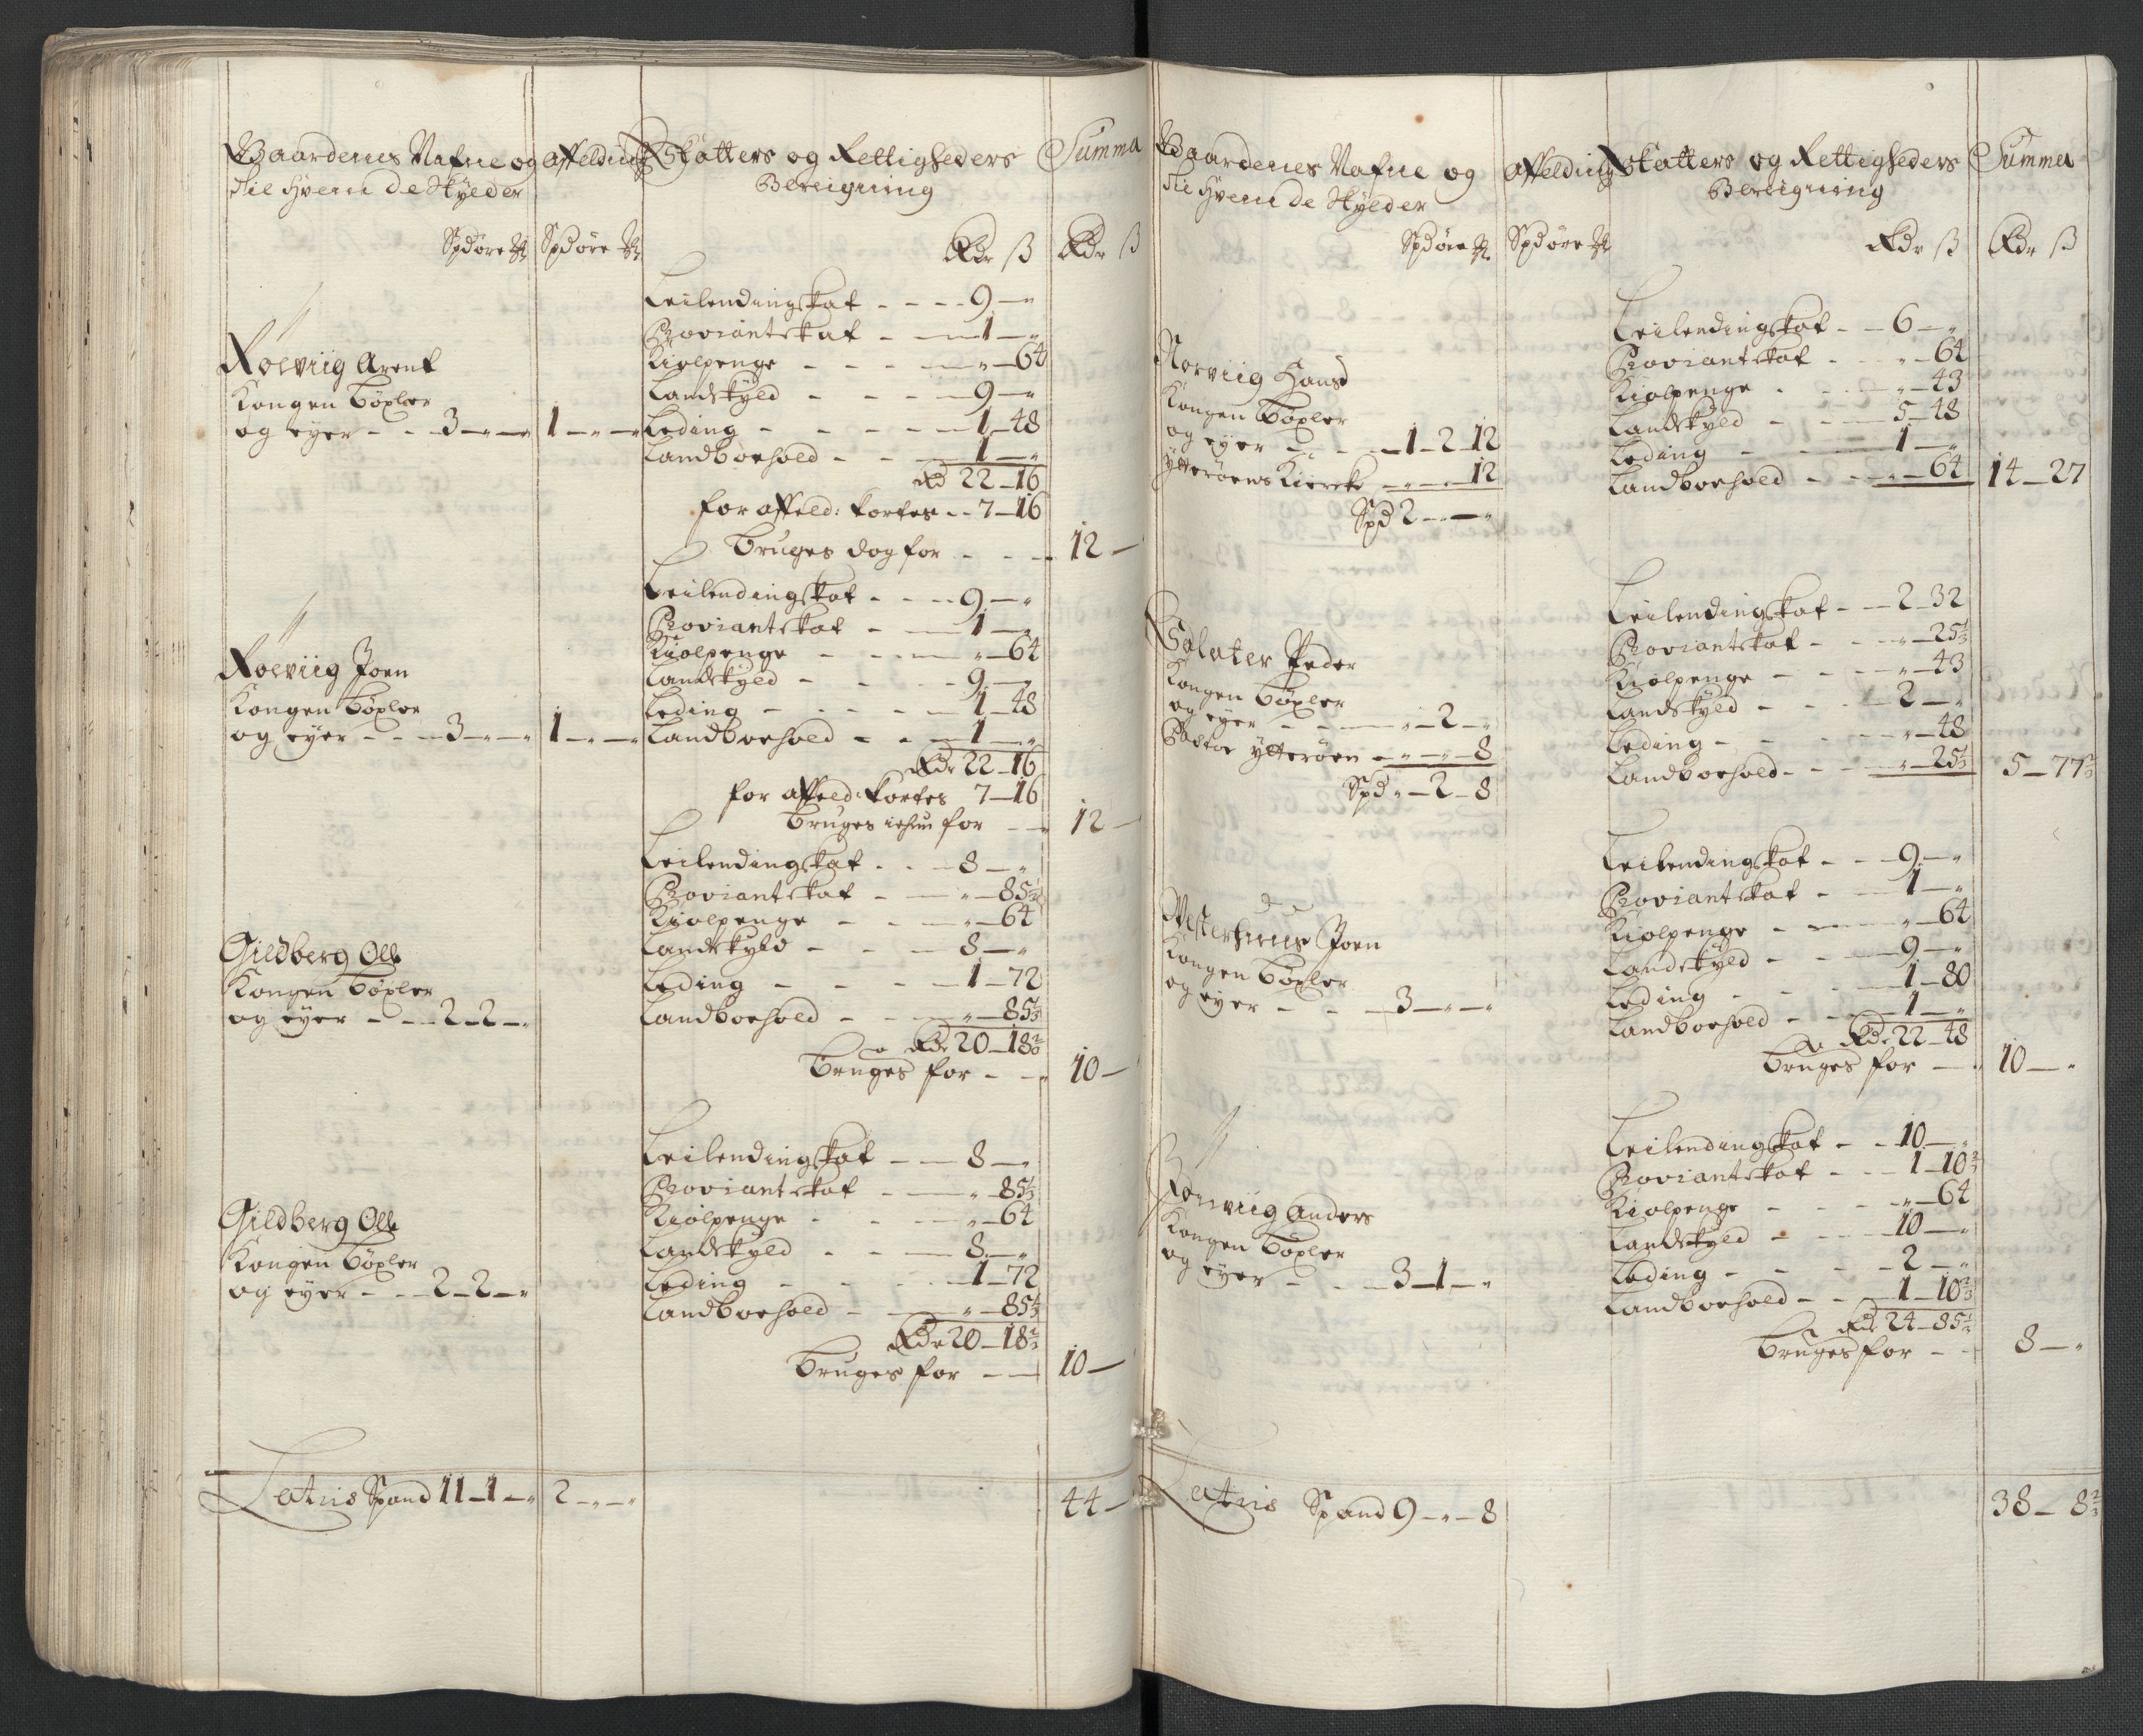 Gaardenes Nafne og
til hvem de Skylder
affelding
Skatters og Rettigheders
Beregning
Summa
Spd øre
Spd øre
Rdr ß
Rdr ß
Roeviig Arent
Kongen böxler
og eyer - - 3 - " - " 1 - " - "
Leilendingskat - - - - 9 - "
Proviantskat - - 1 - "
Kiolpenge - - - - " - 64
Landskyld - - - - 9 - "
Leding - - - - - 1 - 48
Landboehold - - - 1 - "
Rd 22 - 16
for affeld: kortes - - 7 - 16
bruges dog for - - - 12 -
Roeviig Joen
Kongen böxler
og eyer - - - 3 - " - " 1 - " - "
Leilendingskat - - - - 9 - "
Proviantskat - - 1 - "
Kiolpenge - - - - " - 64
Landskyld - - - - 9 - "
Leding - - - - 1 - 48
Landboehold - - - 1 - "
Rdr 22 - 16
for affeld: kortes 7 - 16
bruges ichun for - - 12 -
Gildberg Ole
Kongen böxler
og eyer - - - 2 - 2 - "
Leilendingskat - - - 8 - "
Proviantskat - - " - 85 1/3
Kiolpenge - - - " - 64
Landskyld - - - 8 - "
Leding - - - - 1 - 72
Landboehold - - - " - 85 1/3
Rdr 20 - 18 2/3
bruges for - - - 10 -
Gildberg Ole
Kongen böxler
og eyer - - - 2 - 2 - "
Leilendingskat - - 8 - "
Proviantskat - - " - 85 1/3
Kiolpenge - - - " - 64
Landskyld - - - 8 - "
Leding - - - - 1 - 72
Landboehold - - " - 85 1/3
Rdr 20 - 18 2/3
bruges for - - 10 -
Latus Spand 11 - 1 - " 2 - " - " 44 -
Gaardenes Nafne og
til hvem de Skylder
affelding
Skatters og Rettigheders
Beregning
Summa
Spd øre
Spd øre
Rdr ß
Rdr ß
Norviig Hans
Kongen böxler
og eyer - - - 1 - 2 - 12
Ytterøens Kiercke - " - " - 12
Spd 2 - " - "
Leilendingskat - - 6 - "
Proviantskat - - " - 64
Kiolpenge - - - " - 43
Landskyld - - - 5 - 48
Leding - - - 1 - "
Landboehold - - - " - 64 14 - 27
Peder
Kongen böxler
og eyer - - - " - 2 - "
Pastor Ytterøen - " - " - 8
Spd " - 2 - 8
Leilendingskat - - 2 - 32
Proviantskat - - - " - 25 1/3
Kiolpenge - - - " - 43
Landskyld - - - 2 - "
Leding - - - " - 48
Landboehold - - - " - 25 1/3 5 - 77 2/3
Westerhuus Joen
Kongen böxler
og eyer - - - 3 - " - "
Leilendingskat - - - 9 - "
Proviantskat - - 1 - "
Kiolpenge - - - " - 64
Landskyld - - - 9 - "
Leding - - - 1 - 80
Landboehold - - - 1 - "
Rdr 22 - 48
bruges for - - 10 - "
Anders
Kongen böxler
og eyer - - - 3 - 1 - "
Leilendingskat - - 10 - "
Proviantskat - - - 1 - 10 2/3
Kiolpenge - - - " - 64
Landskyld - - - 10 - "
Leding - - - - 2 - "
Landboehold - - - 1 - 10 2/3
Rdr 24 - 85 1/3
bruges for - - 8 - "
Latus Spand 9 - " - 8 38 - 8 2/3